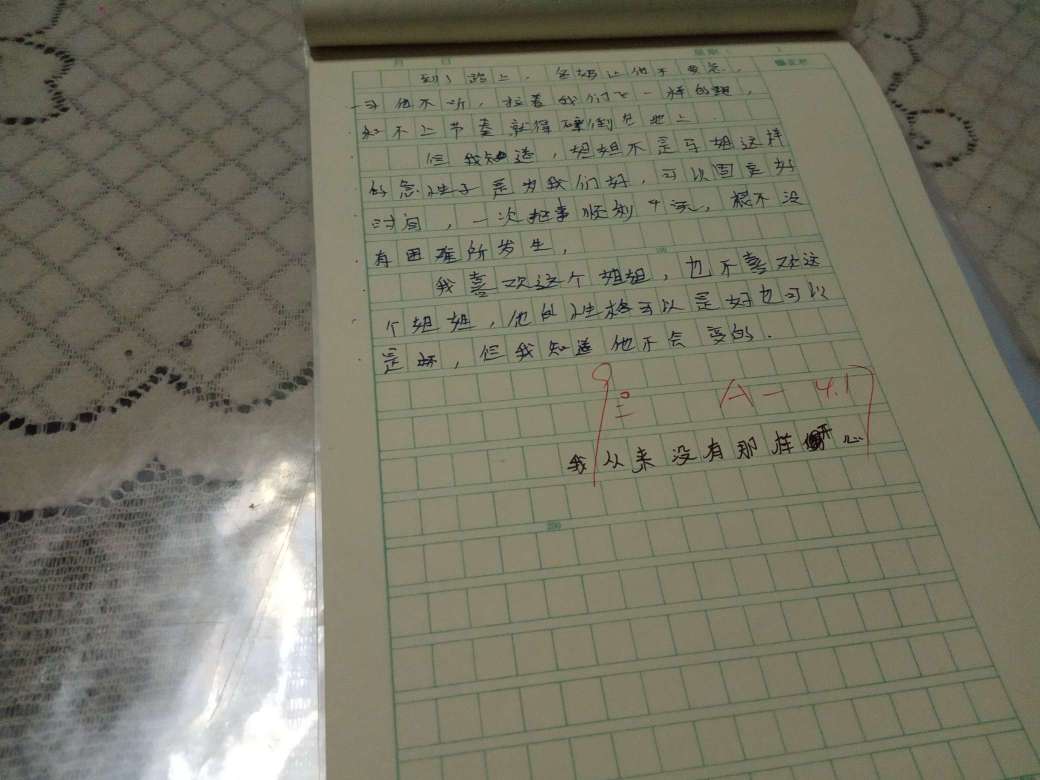 月 日 星期（ ）
到了路上，爸妈让他不要急，
他不听，拉着我们飞一样的跑，
跟不上节奏就得摔倒在地上．
但我知道，姐姐不是平姐这样
的急性子是为我们好，可以固定好
时间，一次把事 刻 ，根不没
有困难所发生，
我喜欢这个姐姐，也不喜欢这
个姐姐，他的性格可以是好也可以
是坏，但我知道他不会变的．
100
A- 4.17
我从来没有那样 开心
200